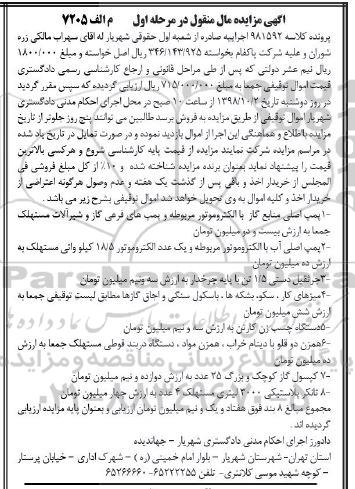 آگهی مزایده مال منقول در مرحله اول م الف ۷۲۰۵
پرونده کلاسه ۹۸۱۵۹۲ اجراییه صادره از شعبه اول حقوقی شهریار له آقای سهراب مالکی زره
شوران و علیه شرکت باکفام بخواسته ۳۴۶/۱۴۳/۹۲۵ ریال اصل خواسته و مبلغ ۱۸۰۰/۰۰۰
ریال نیم عشر دولتی که پس از طی مراحل قانونی و ارجاع کارشناسی رسمی دادگستری
قیمت اموال توقیفی جمعا به مبلغ ۷۱۵/۰۰۰/۰۰۰ ریال ارزیابی گردیده که سپس مقرر گردید
در روز دوشنبه تاریخ ۱۳۹۸/۱۰/۲ از ساعت ۱۰ صبح در محل اجرای احکام مدنی دادگستری
شهریار اموال توقیفی از طریق مزایده به فروش برسد طالبین می توانند پنج روز جلوتر از تاریخ
مزایده با اطلاع و هماهنگی این اجرا از اموال بازدید نموده و در صورت تمایل در تاریخ یاد شده
در مراسم مزایده شرکت نمایند مزایده از قیمت پایه کارشناسی شروع و هرکسی بالاترین
قیمت را پیشنهاد نماید بعنوان برنده مزایده شناخته شده و ۱۰٪ از کل مبلغ فروشی فی
المجلس از خریدار اخذ و باقی پس از گذشت یک هفته و عدم وصول هرگونه اعتراضی از
خریدار اخذ و کلیه اموال به وی تحویل خواهد شد اموال توقیفی بشرح زیر می باشد.
۱-پمپ اصلی منابع گاز با الکتروموتور مربوطه و پمپ های فرعی گاز و شیرآلات مستهلک
جمعا به ارزش بیست و دو میلیون تومان
۲-پمپ اصلی آب با الکتروموتور مربوطه و یک عدد الکتروموتور ۱۸/۵ کیلو واتی مستهلک به
ارزش ده میلیون تومان
۳-جرثقیل دستی ۱/۵ تن با پایه چرخدار به ارزش سه ونیم میلیون تومان
۴-میزهای کار ، سکو، بشکه ها ، باسکول سنگی و اجاق گازها مطابق لیست توقیفی جمعا به
ارزش شش میلیون تومان
۵-دستگاه چسب زن کارتن به ارزش سه و نیم میلیون تومان
۶-همزن دو قلو با دینام خراب ، همزن مواد ، دستگاه دربند قوطی مستهلک جمعا به ارزش
ده میلیون تومان
۷- کپسول گاز کوچک و بزرگ ۲۵ عدد به ارزش دوازده و نیم میلیون تومان
۸- تانکر پلاستیکی ۳۰۰۰ لیتری مستهلک ۴ عدد به ارزش چهار میلیون تومان
مجموع مبالغ ۸ بند فوق هفتاد و یک و نیم میلیون تومان ارزیابی و بعنوان پایه مزایده ارزیابی
گردیده اند.
دادورز اجرای احکام مدنی دادگستری شهریار - جهاندیده
استان تهران- شهرستان شهریار - بلوار امام خمینی (ره) - شهرک اداری - خیابان پرستار
- کوچه شهید موسی کلانتری- تلفن ۶۵۲۲۲۲۵۵-۶۵۲۶۶۶۶۰